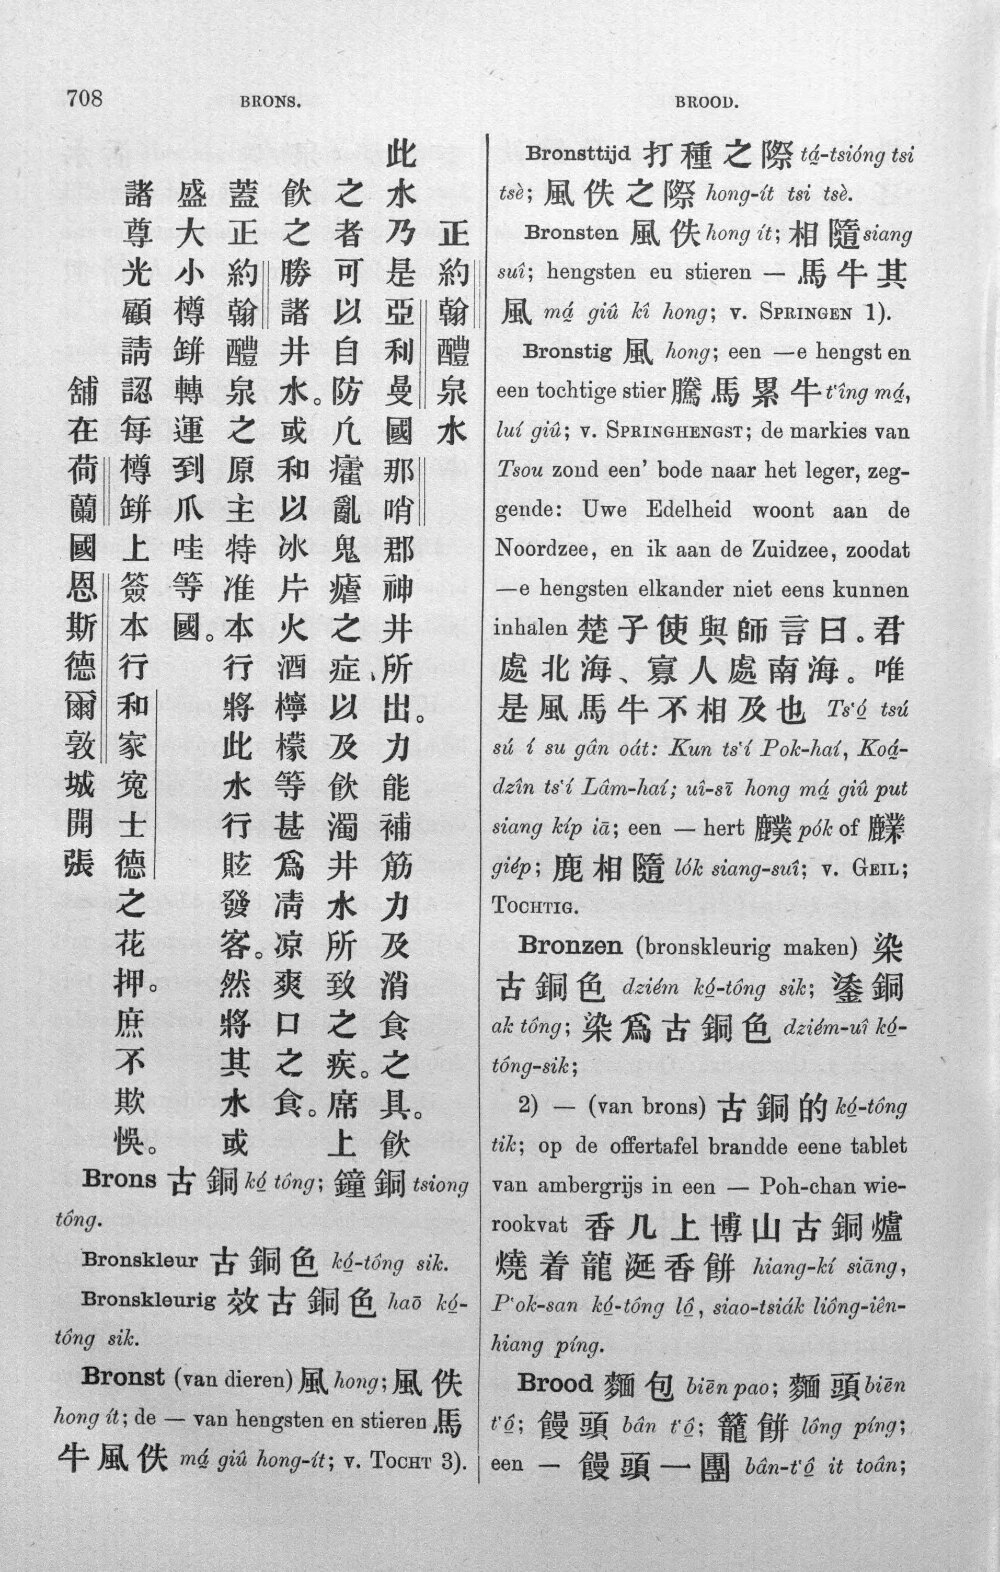 708
BRONS.
BROOD.
正約翰醴泉水
此水乃是亞利曼國那哨郡神井所出。力能補筋力及消食之具。飲
之者可以自防凢瘧亂鬼瘧之症、以及飲濁井水所致之疾。席上
飲之勝諸井水。或和以冰片火酒檸檬等甚爲凊凉爽口之食。
蓋正約翰醴泉之原主特准本行將此水行眩發客。然將其水或
盛大小樽缾轉運到爪哇等國。
諸尊光顧請認每樽缾上簽本行和家寃士德之花押。庶不欺悞。
舖在荷蘭國恩斯德爾敦城開張
Brons 古銅 kó tông; 鐘銅 tsiong
tông.
Bronskleur 古銅色 kó-tông sik.
Bronskleurig 效古銅色 haō kó-
tông sik.
Bronst (van dieren) 風 hong; 風佚
hong ít; de — van hengsten en stieren 馬
牛風佚 má giû hong-ít; v. TOCHT 3).
Bronsttijd 打種之際 tá-tsióng tsi
tsè; 風佚之際 hong-ít tsi tsè.
Bronsten 風佚 hong ít; 相隨 siang
suî; hengsten eu stieren — 馬牛其
風 má giû kî hong; v. SPRINGEN 1).
Bronstig 風 hong; een —e hengst en
een tochtige stier 騰馬累牛 t'îng má,
luí giû; v. SPRINGHENGST; de markies van
Tsou zond een' bode naar het leger, zeg-
gende: Uwe Edelheid woont aan de
Noordzee, en ik aan de Zuidzee, zoodat
—e hengsten elkander niet eens kunnen
inhalen 楚子使與師言曰。君
處北海、寡人處南海。唯
是風馬牛不相及也 Ts'ó tsú
sú í su gân oát: Kun ts'í Pok-haí, Koá-
dzîn ts'í Lâm-haí; uî-sī hong má giû put
siang kíp iā; een — hert 纀 pók of
giép; 鹿相隨 lók siang-suî; v. GEIL;
TOCHTIG.
Bronzen (bronskleurig maken) 染
古銅色 dziém kó-tông sik; 鋈銅
ak tông; 染爲古銅色 dziém-uî kó-
tóng-sik;
2) — (van brons) 古銅的 kó-tông
tik; op de offertafel brandde eene tablet
van ambergrijs in een — Poh-chan wie-
rookvat 香几上博山古銅爐
燒着龍涎香餅 hiang-kí siāng,
P'ok-san kó-tông lô, siao-tsiák liông-iên-
hiang píng.
Brood 麵包 biēn pao; 麵頭 biēn
t'ô; 饅頭 bân t'ô; 籠餅 lông píng;
een — 饅頭一團 bân-t'ô it toân;